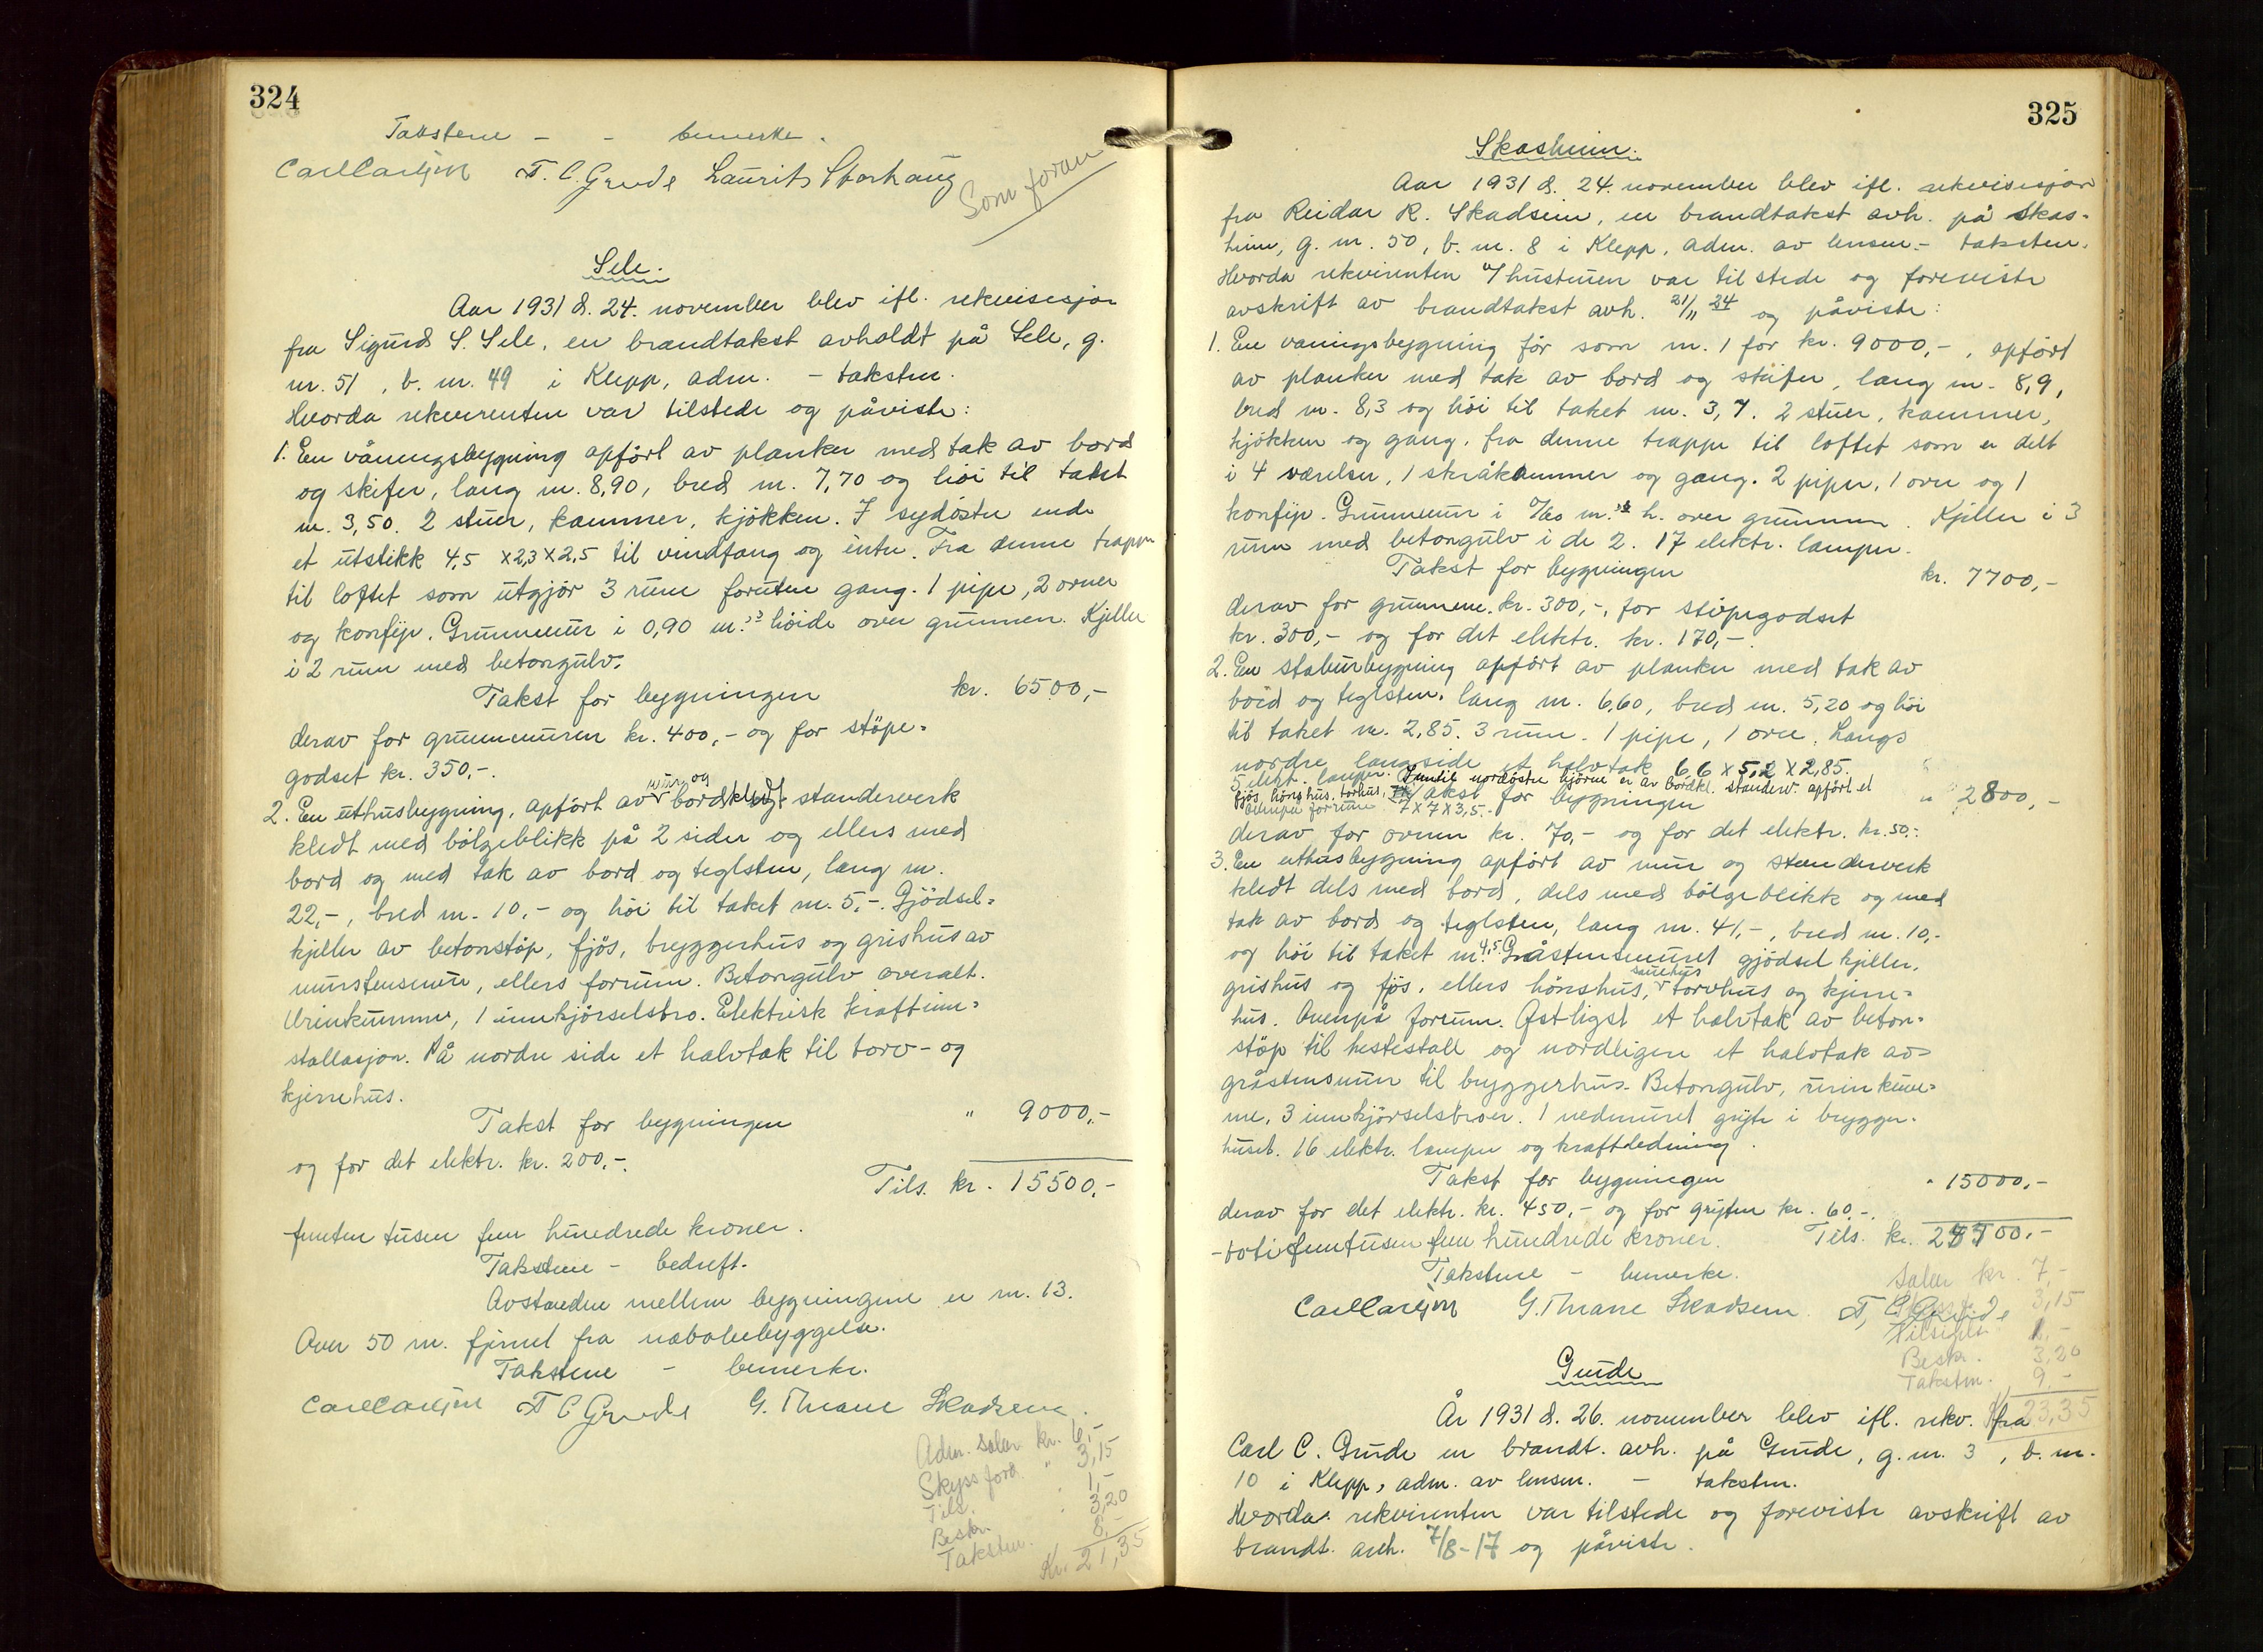 324
Takstene - - bemerke.
Carl Carlsen T. C. Grude Laurits Storhaug
Som foran
Sele.
Aar 1931 d. 24. november blev ifl. rekvisisjon
fra Sigurd S. Sele, en brandtakst avholdt på Sele, g.
nr. 51, b. nr. 49 i Klepp, adm. - takstm.
Hvorda rekvirenten var tilstede og påviste:
1. En våningsbygning opført av planker med tak av bord
og skifer, lang m. 8,90, bred m. 7,70 og høi til taket
m. 3,50. 2 stuer, kammer, kjøkken. I sydøstre ende
et utstikk 4,5 x 2,3 x 2,5 til vindfang og entre. Fra denne trappe
til loftet som utgjør 3 rum foruten gang. 1 pipe, 2 ovner
og komfyr. Grunnmur i 0,90 m.s høide over grunnen. Kjeller
i 2 rum med betongulv.
Takst for bygningen kr. 6500,-
derav for grunnmuren kr. 400,- og for støpe-
godset kr. 350,-.
2. En uthusbygning, opført av mur og bordkledt standerverk
kledt med bølgeblikk på 2 sider og ellers med
bord og med tak av bord og teglsten, lang m.
22,-, bred m. 10,- og høi til taket m. 5,-. Gjødsel-
kjeller av betonstøp, fjøs, bryggerhus og grishus av
murstensmur, ellers forrum. Betongulv overalt.
Urinkumme, 1 innkjørselsbro. Elektrisk kraftinn-
stallasjon. På nordre side et halvtak til torv- og
kjerrehus.
Takst for bygningen " 9000,-
og for det elektr. kr. 200,-.
Tils. kr. 15500,-
femten tusen fem hundrede kroner.
Takstene - bedreft.
Avstanden mellem bygningene er m. 13.
Over 50 m. fjernet fra nabobebyggelse.
Takstene - bemerke.
Carl Carlsen T C Grude G. Thrane Skadsem.
Adm. salær kr. 6,-
Skyss ford. " 3,15
Tils. 1,-
Beskr. 3,20
Takstm. 8,-
Kr. 21,35
325
Skasheim.
Aar 1931 d. 24. november blev ifl. rekvisisjon
fra Reidar R. Skadsem, en brandtakst avh. på Skas-
heim, g. nr. 50, b. nr. 8 i Klepp, adm. av lensm. - takstm.
Hvorda rekvirenten v/ hustruen var tilstede og foreviste
avskrift av brandtakst avh. 21/11 24 og påviste:
1. En våningsbygning før som nr. 1 for kr. 9000,-, opført
av planker med tak av bord og skifer, lang m. 8,9,
bred m. 8,3 og høi til taket m. 3,7. 2 stuer, kammer,
kjøkken og gang, fra denne trappe til loftet som er delt
i 4 værelser, 1 skråkammer og gang. 2 piper, 1 ovn og 1
komfyr. Grunnmur i m.s h. over grunnen. Kjeller i 3
rum med betongulv i de 2. 17 elektr. lamper.
Takst for bygningen kr. 7700,-
derav for grunnm. kr. 300,-, for støpegodset
kr. 300,- og for det elektr. kr. 170,-.
2. En stabursbygning opført av planker med tak av
bord og teglsten, lang m. 6,60, bred m. 5,20 og høi
til taket m. 2,85. 3 rum. 1 pipe, 1 ovn. Langs
nordre langside et halvtak 6,6 x 5,2 x 2,85.
5 elekt. lamper. Inntil nordøstre hjørne er av bordkl. standerv. opført et
fjøs, hønshus, torhus, Takst for bygningen " 2800,-
ovenpå forrum 7 x 7 x 3,5.-
derav for ovnen kr. 70,- og for det elektr. kr. 50,-.
3. En uthusbygning opført av mur og standerverk
kledt dels med bord, dels med bølgeblikk og med
tak av bord og teglsten, lang m. 41,-, bred m. 10,-
og høi til taket m. 4,5. Gråstensmuret gjødselkjeller,
grishus og fjøs, ellers hønshus, sauehus torvhus og kjerre-
hus. Ovenpå forrum. Østligst et halvtak av beton-
støp til hestestall og nordligere et halvtak av
gråstensmur til bryggerhus. Betongulv, urinkum-
me, 3 innkjørselsbroer. 1 nedmuret gryte i brygger-
huset. 16 elektr. lamper og kraftledning.
Takst for bygningen " 15000,-
derav for det elektr. kr. 450,- og for gryten kr. 60,-.
Tils. kr. 25500,-
-toti femtusen fem hundrede kroner.
Takstene - bemerke.
Carl Carlsen G. Thrane Skadsem. T. C. Grude
Salær kr. 7,-
3,15
Tilsigls. 1,-
Beskr. 3,20
Takstm. 9,-
Kr. 23,35
Grude
År 1931 d. 26. november blev ifl. rekv. fra
Carl C. Grude en brandt. avh. på Grude, g. nr. 3, b. nr.
10 i Klepp, adm. av lensm. - takstm.
Hvorda rekvirenten var tilstede og foreviste avskrift av
brandt. avh. 7/8-17 og påviste.